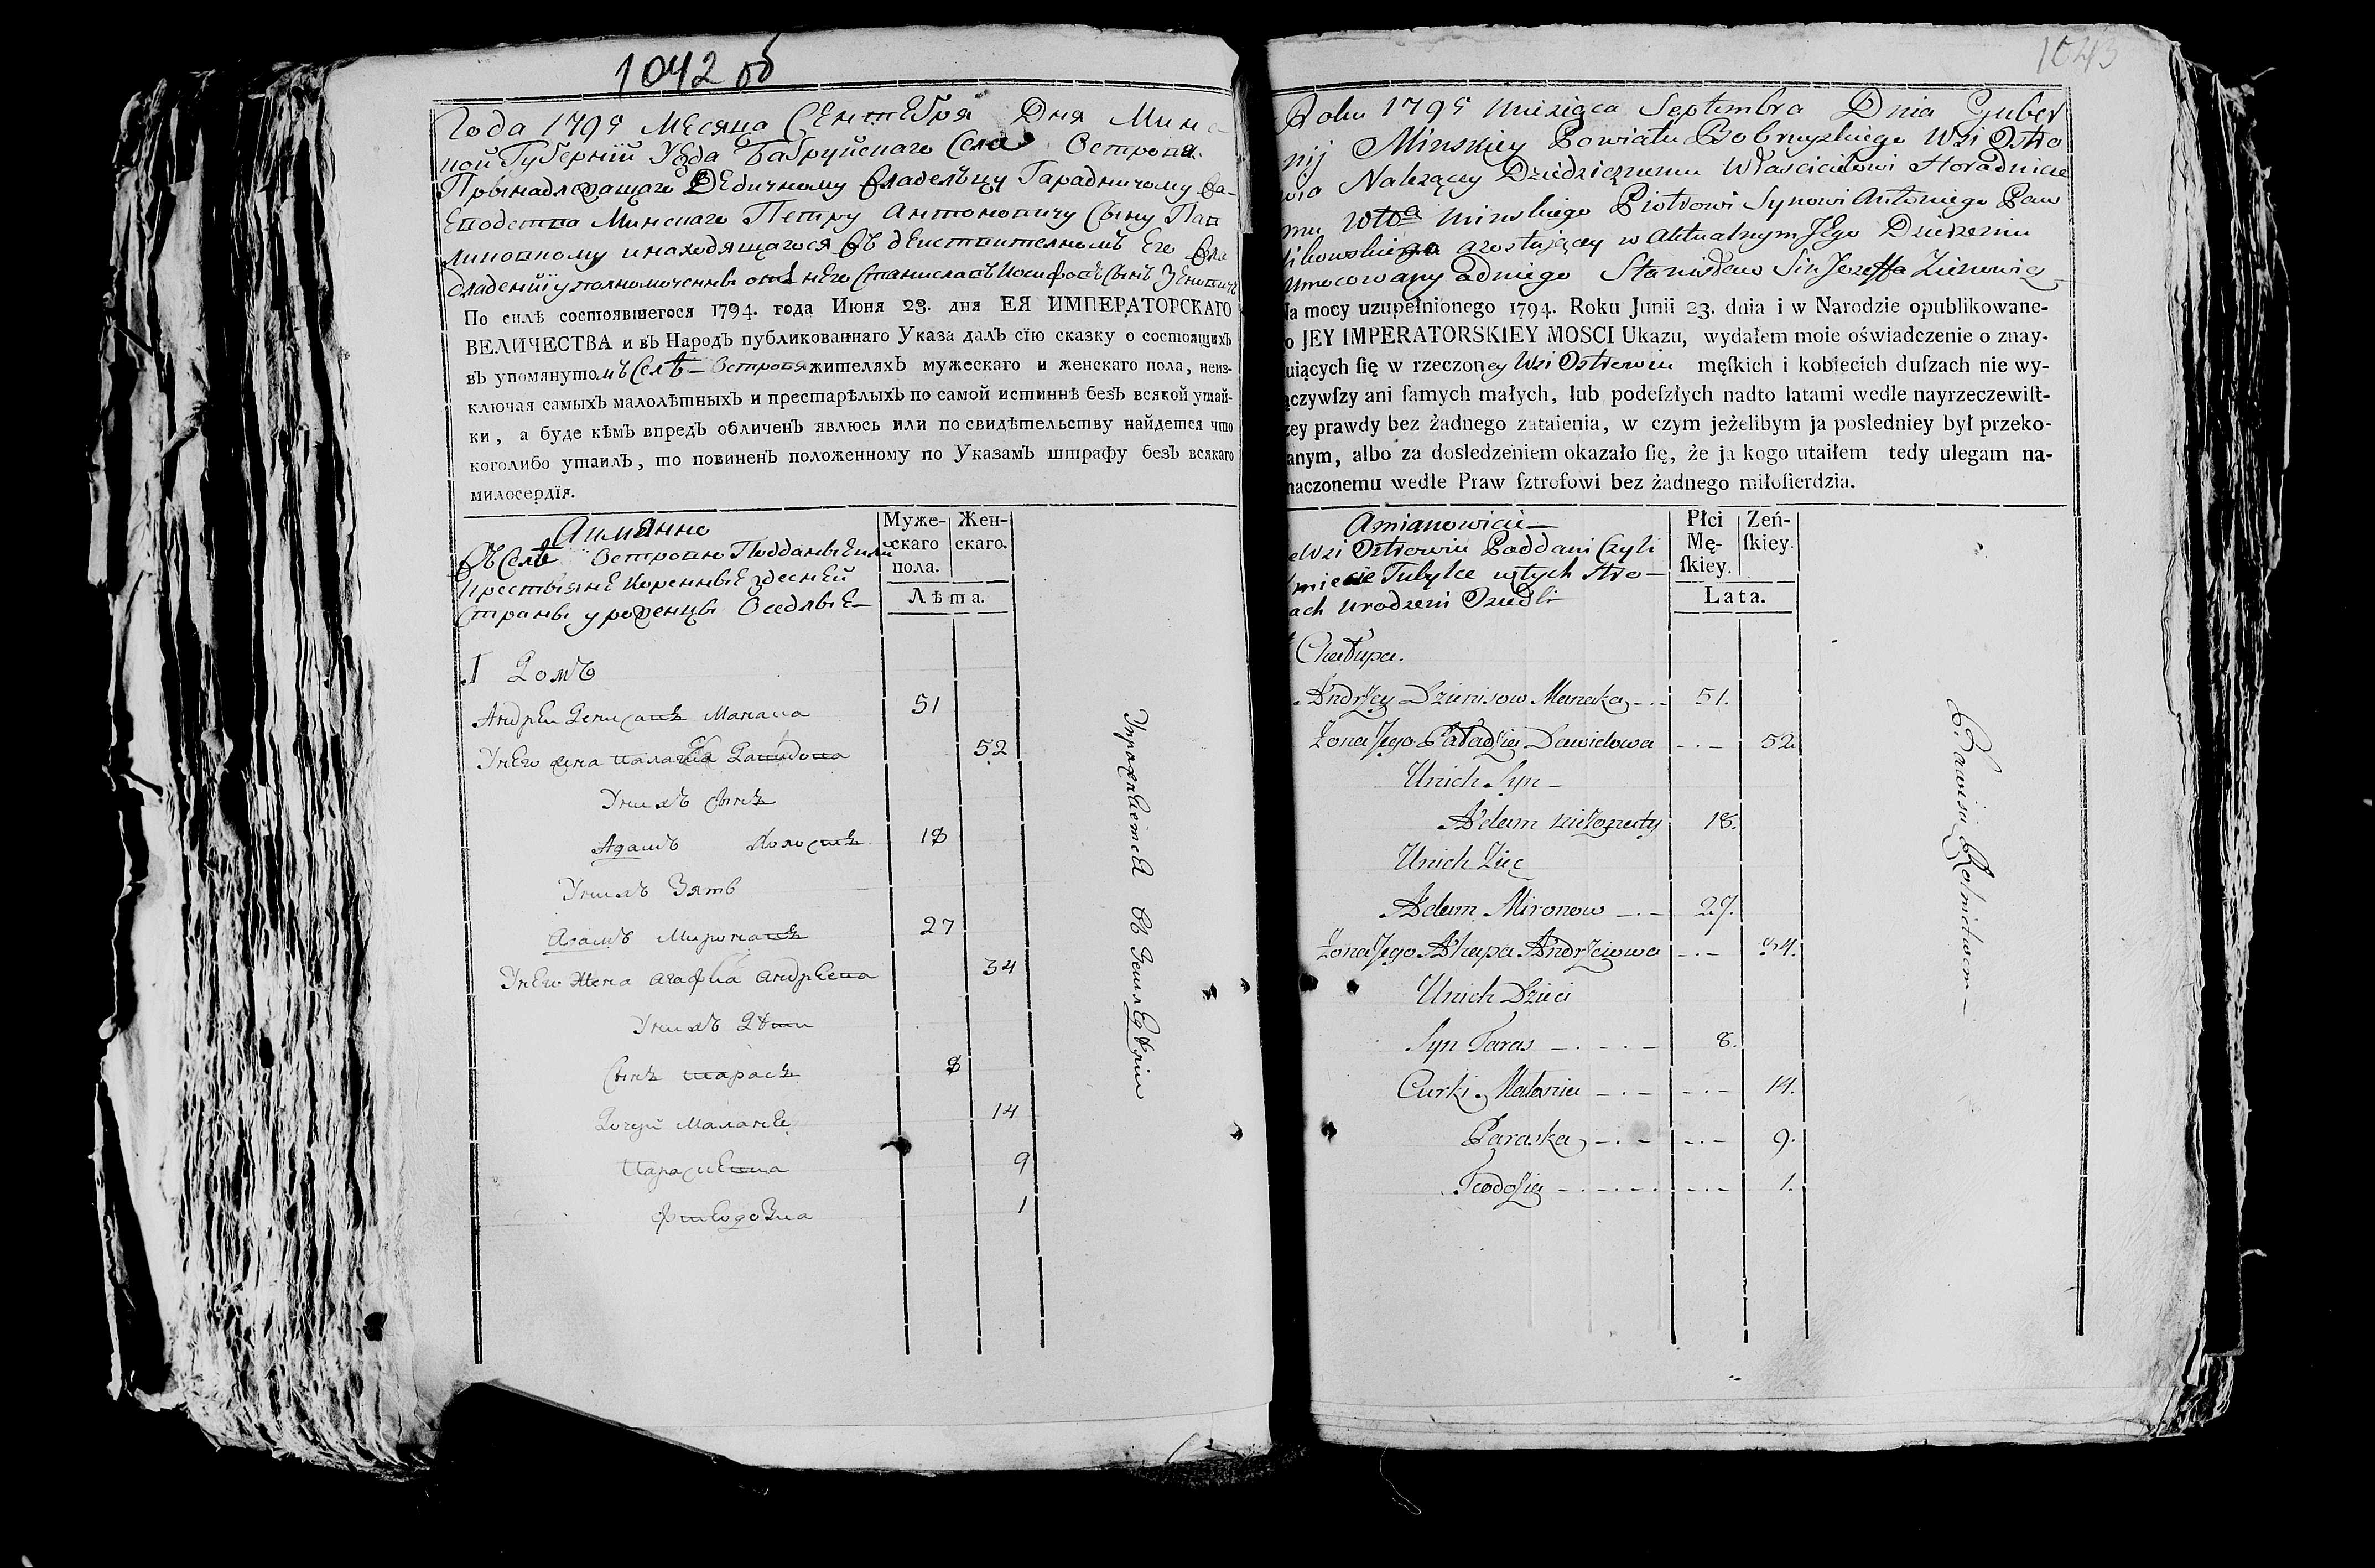 1042 об
Года 1795 Месяца Сентебря Дня Минс
ной Губернїи Уезда Бабруйскаго Села Острова
Прынадлежащаго Дедичному Владельцу Гарадничому Ва-
еводства Минскаго Петру Антоновичу Сыну Пав
ликовкому инаходящагося Въ действителномъ Его Вла
дладениї уполномоченны отъ Него Станиславъ Иосифовъ Сынъ Зеновичъ
По силѣ состоявшегося 1794. года Июня 23. дня ЕЯ ИМПЕРАТОРСКАГО
ВЕЛИЧЕСТВА и въ Народъ публикованнаго Указа далъ сїю сказку о состоящихъ
въ упомянутомъ Селѣ — Острове жителяхъ мужескаго и женскаго пола, неиз-
ключая самыхъ малолѣтныхъ и престарѣлыхъ по самой истиннѣ безъ всякой утай-
ки, а буде кѣмъ впредъ обличенъ явлюсь или по свидѣтельству найдется что
коголибо утаилъ, то повиненъ положенному по Указамъ штрафу безъ всякаго
милосердїя.
Аимянно
Въ Селѣ Острове Подданые или
Крестьяне Коренные здесней
Страны уроженцы Оседлые —
Муже-скаго пола. Жен-скаго.
Лѣта.
I Домъ
Андреи Денисовъ Манака 51
Унего жена Палагея Давидова 52
Унихъ сынъ
Адамъ Холостъ 18
Унихъ Зять
Адамъ Мироновъ 27
Унего Жена Агафиа Андреева 34
Унихъ Дѣти
Сынъ Тарасъ 8
Дочери Маланя 14
Парасkева 9
Фтеодозиа 1
Упражняется въ Земледѣлии
1043
Roku 1795 miesiąca Septembra Dnia Guber
nij Minskiey Powiatu Bobruyskiego Wsi Ostro
wia Należącey Dziedzicznemu Właścicielowi Horadnicze
mu Wtwa Minskiego Piotrowi Synowi Antoniego Paw
likowskiego zostającey w Aktualnym Jego Dzierżeniu
umocowany odniego Stanisław Sin Jozeffa Zienowicz
Na mocy uzupełnionego 1794. Roku Junii 23. dnia i w Narodzie opublikowane-
o JEY IMPERATORSKIEY MOSCI Ukazu, wydałem moie oświadczenie o znay-
uiących ſię w rzeczoney Wsi Ostrowiu męſkich i kobiecich duſzach nie wy-
ączywſzy ani ſamych małych, lub podeſzłych nadto latami wedle nayrzeczewiſt-
zey prawdy bez żadnego zataienia, w czym jeżelibym ja posledniey był przeko-
anym, albo za dosledzeniem okazało ſię, że ja kogo utaiłem tedy ulegam na-
naczonemu wedle Praw ſztrofowi bez żadnego miłoſierdzia.
Amianowicie —
eWsi Ostrowiu Poddani Czyli
miecie Tubylce wtych stro —
ach urodzeni Osiedli
Płci Mę-ſkiey. Zeń-ſkiey.
Lata.
Chałupa.
Andrzey Dzienisow Manaka 51.
Żona Jego Paładzia Dawidowa 52.
Unich Syn —
Adam nieżonaty 18.
Unich Zięc
Adam Mironow 27.
Żona Jego Ahapa Andrzeiowa 34.
Unich Dzieci
Syn Taras 8.
Curki Małania 14.
Paraska 9.
Teodosia 1.
Bawisię Rolnictwem —